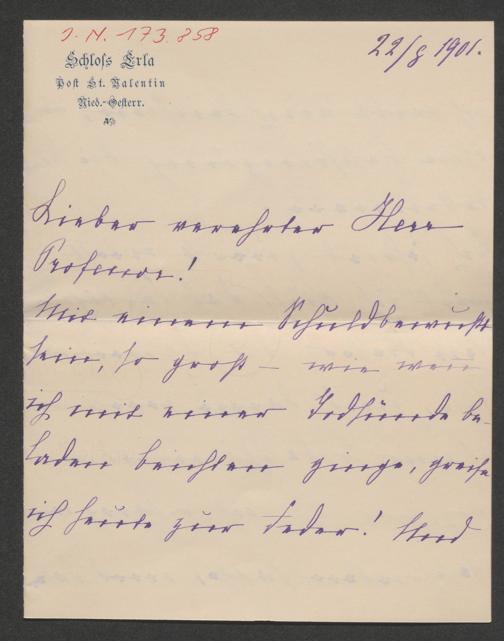 J. N. 173.858
Schloss Erla
Post St. Valentin
Nied.-Oesterr.
22/8 1901.
Lieber verehrter Herr
Professor!
Mit einem Schuldbewußt
sein, so groß – wie wen
ich mit einer Todsünde be-
laden beichten ginge, greife
ich heute zur Feder! Und